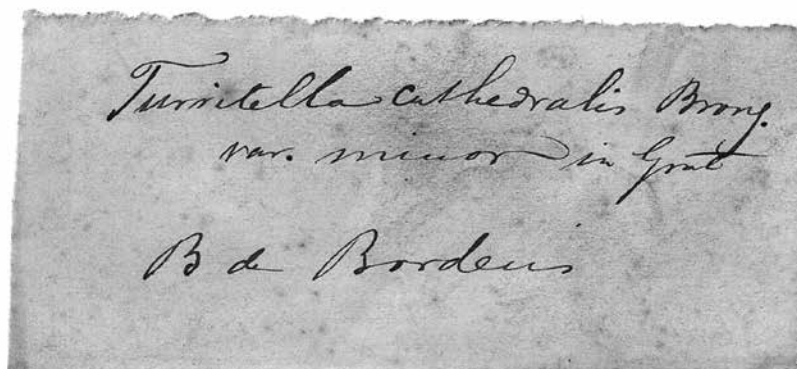 Turritella cathedralis Brong.
var. minor in Grat
B de Bordeus